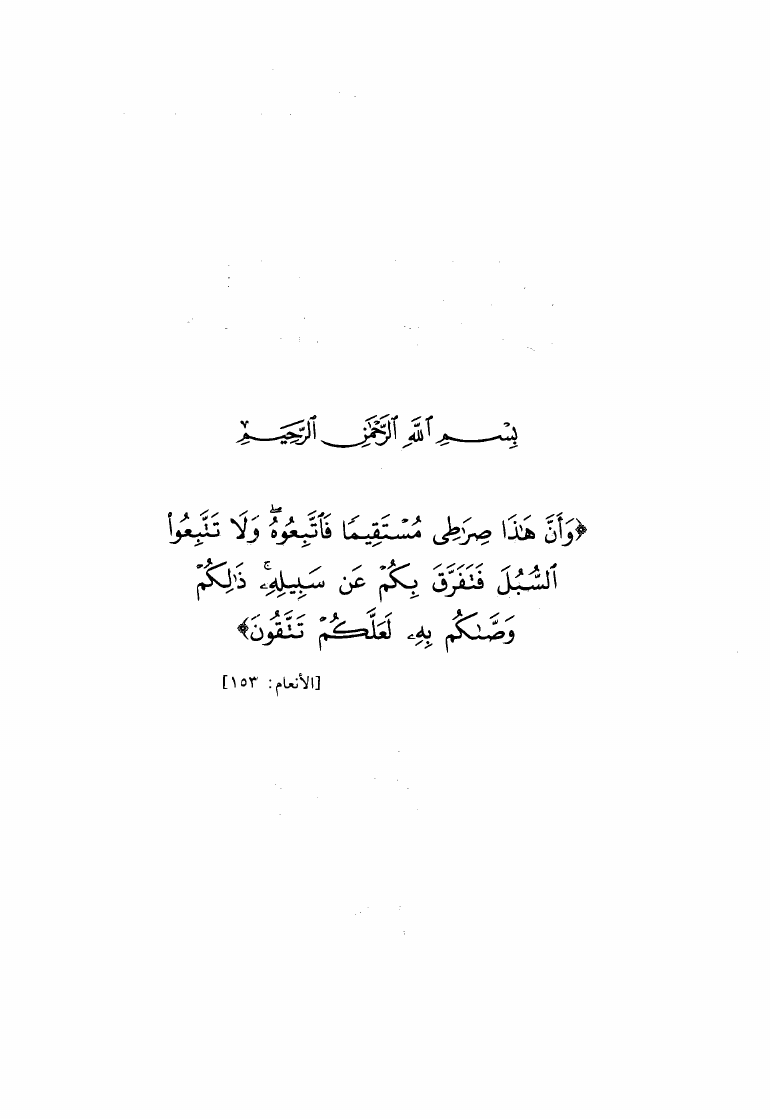 بِسْمِ ٱللَّهِ ٱلرَّحْمَٰنِ ٱلرَّحِيمِ
﴿وَأَنَّ هَٰذَا صِرَٰطِى مُسْتَقِيمًا فَٱتَّبِعُوهُۖ وَلَا تَتَّبِعُوا۟
ٱلسُّبُلَ فَتَفَرَّقَ بِكُمْ عَن سَبِيلِهِۦۚ ذَٰلِكُمْ
وَصَّىٰكُم بِهِۦ لَعَلَّكُمْ تَتَّقُونَ﴾
[الأنعام: ١٥٣]